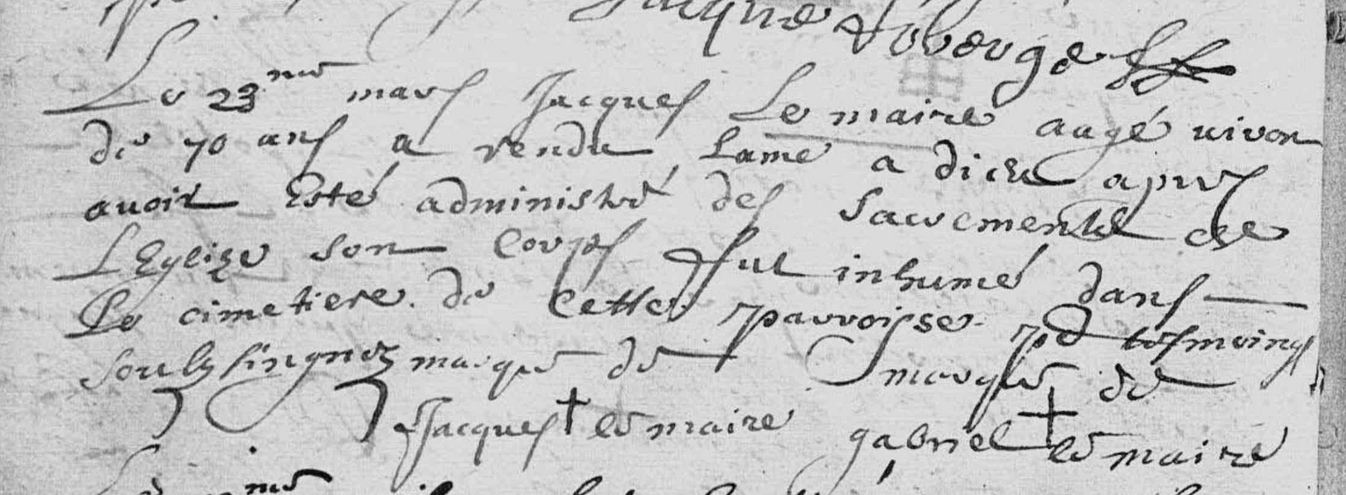 Jacque Auberge
Le 23me mars Jacques Le maire aagé uiron
de 70 ans a rendu lame a dieu apres
auoir Esté administré des Sacrements de
LEglize son Corps fut inhumé dans
Le cimetiere de Cette parroisse pd tesmoings
soubs singnez marque de marque de
Jacques + le maire gabriel + le maire
Le me